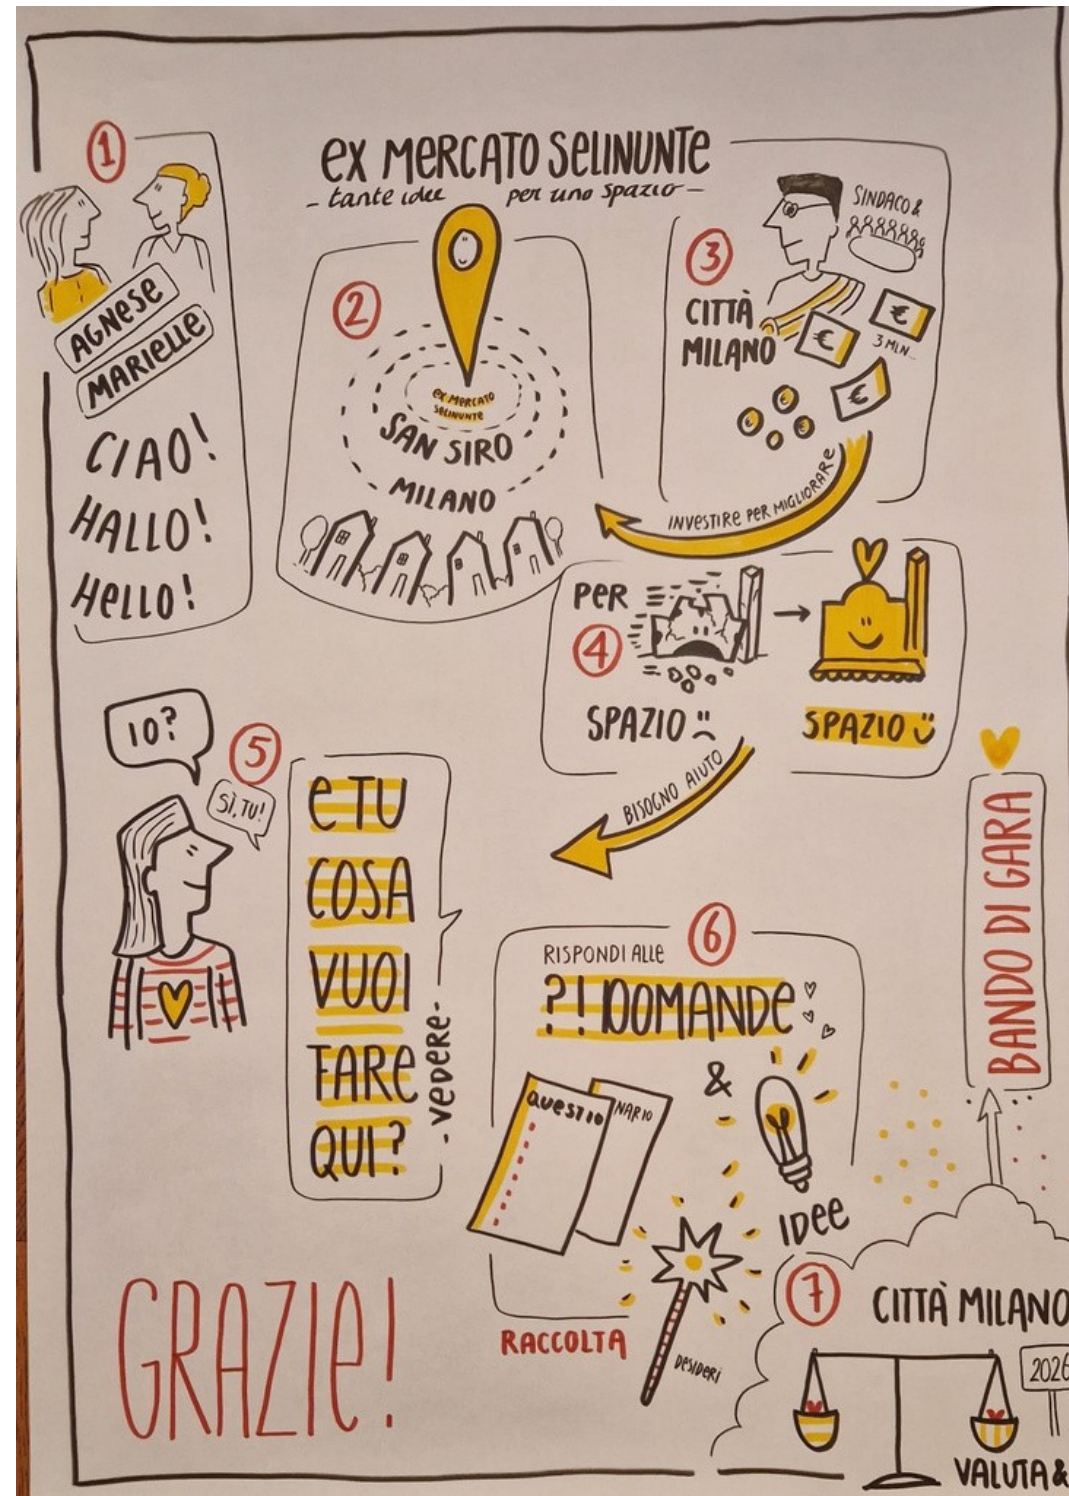 ex MERCATO SELINUNTE
- tante idee per uno spazio -
1
AGNESE
MARIELLE
CIAO!
HALLO!
HELLO!
2
ex MERCATO
SELINUNTE
SAN SIRO
MILANO
3
SINDACO &
CITTÀ
MILANO
€
€
3 MLN...
€
INVESTIRE PER MIGLIORARE
PER
4
SPAZIO
SPAZIO
BISOGNO AIUTO
IO?
5
SÌ, TU!
e TU
COSA
VUOI
FARE
QUI?
- VEDERE -
6
RISPONDI ALLE
?! DOMANDE
&
QUESTIO
NARIO
IDEE
DESIDERI
RACCOLTA
BANDO DI GARA
7
CITTÀ MILANO
2026
VALUTA &
GRAZIE!